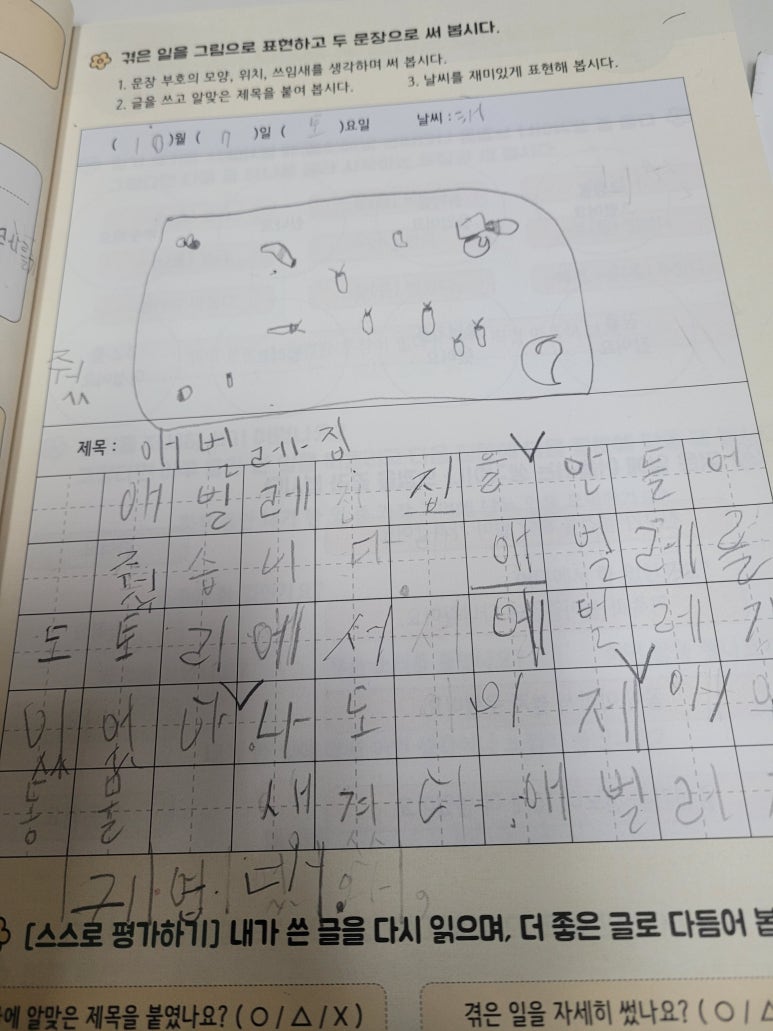 겪은 일을 그림으로 표현하고 두 문장으로 써 봅시다.
1. 문장 부호의 모양, 위치, 쓰임새를 생각하며 써 봅시다.
2. 글을 쓰고 알맞은 제목을 붙여 봅시다. 3. 날씨를 재미있게 표현해 봅시다.
( 10 )월 ( 7 )일 ( 토 )요일 날씨 : 해
줬
제목 : 애벌레집
애벌레 집을 만들어
줬습니다. 애벌레를
도토리에서 애벌레가
있어다 나도 이제
동물 생겨다. 애벌레
귀엽
[스스로 평가하기] 내가 쓴 글을 다시 읽으며, 더 좋은 글로 다듬어
에 알맞은 제목을 붙였나요? (○/△/X) 겪은 일을 자세히 썼나요? (○/△